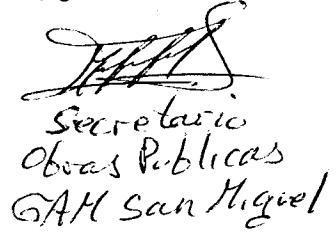 Secretario
Obras Publicas
GAM San Miguel